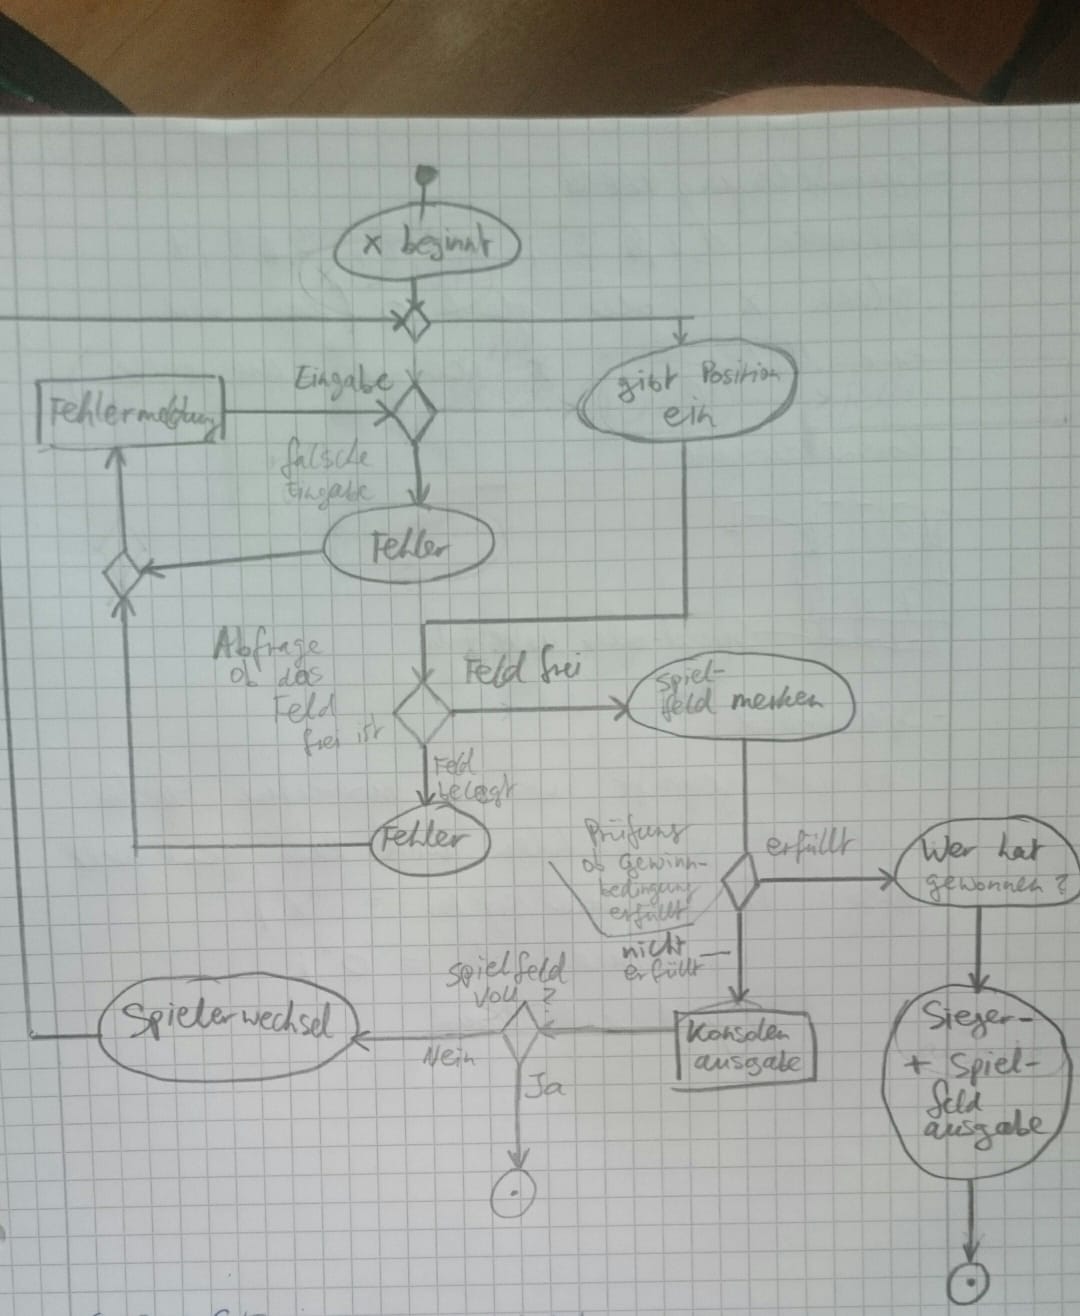 x beginnt
Eingabe
gibt Position
ein
Fehlermeldung
falsche
Eingabe
Fehler
Abfrage
ob das
Feld
frei ist
Feld frei
Spiel-
feld merken
Feld
belegt
Fehler
Prüfung
ob Gewinn-
bedingung
erfüllt
erfüllt
Wer hat
gewonnen?
nicht
erfüllt
Spielfeld
voll?
Spielerwechsel
Nein
Ja
Konsolen
ausgabe
Sieger-
+ Spiel-
feld
ausgabe